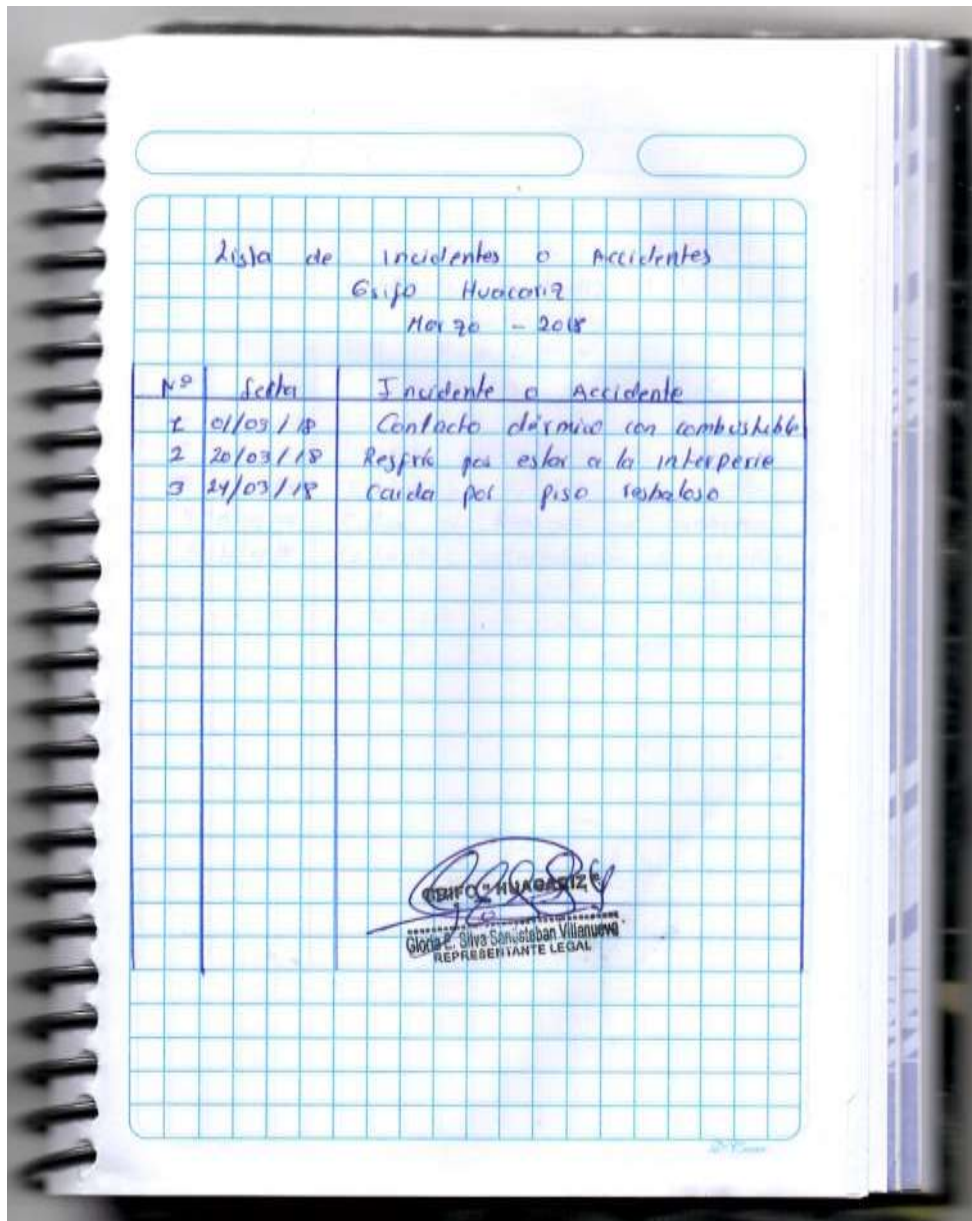 Lista de Incidentes o Accidentes
Grifo Huacariz
Marzo - 2018
Nº fecha Incidente o Accidente
1 01/03/18 Contacto dérmico con combustible
2 20/03/18 Resfrío por estar a la interperie
3 24/03/18 caida por piso resbaloso
GRIFO "HUACARIZ"
Gloria E. Silva Sanisteban Villanueva
REPRESENTANTE LEGAL